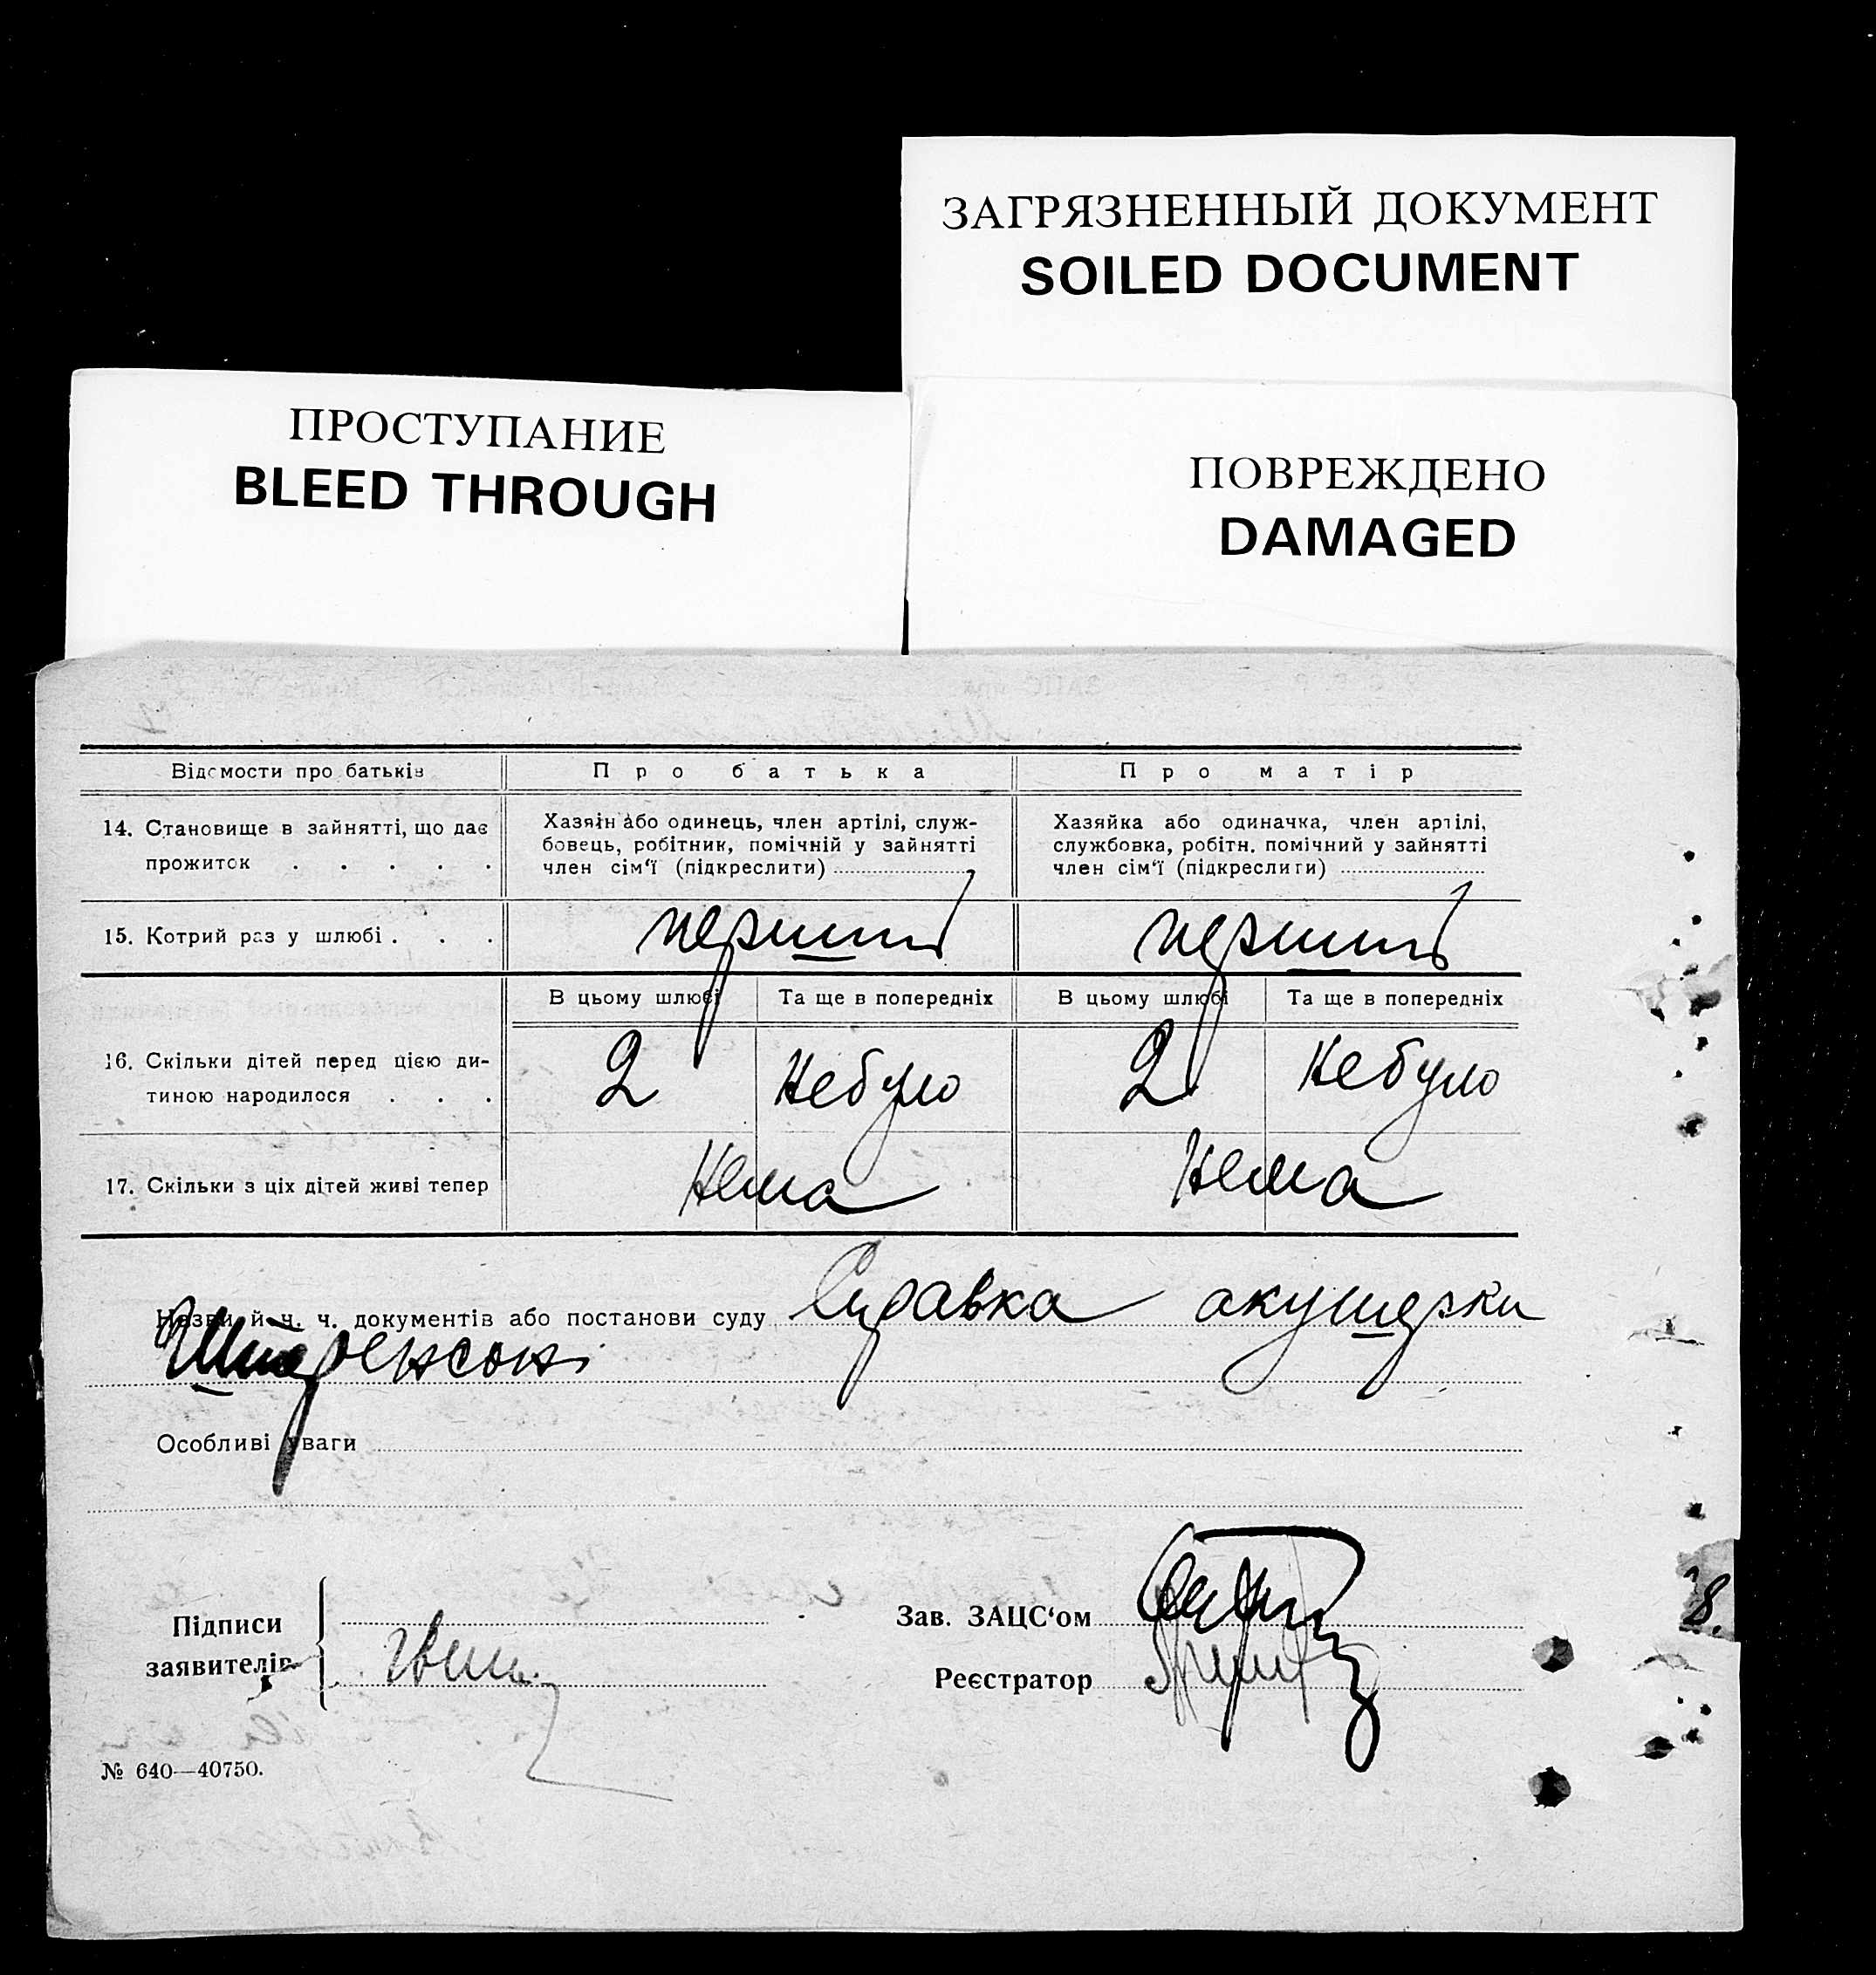 ЗАГРЯЗНЕННЫЙ ДОКУМЕНТ
SOILED DOCUMENT
ПРОСТУПАНИЕ
BLEED THROUGH
ПОВРЕЖДЕНО
DAMAGED
Відомости про батьків
Про батька
Про матір
14. Становище в зайнятті, що дає
прожиток . . . . .
Хазяїн або одинець, член артілі, служ-
бовець, робітник, помічній у зайнятті
член сім'ї (підкреслити)
Хазяйка або одиначка, член артілі,
службовка, робітн. помічний у зайнятті
член сім'ї (підкреслити)
15. Котрий раз у шлюбі . . .
перший
перший
В цьому шлюбі
Та ще в попередніх
В цьому шлюбі
Та ще в попередніх
16. Скільки дітей перед цією ди-
тиною народилося . . .
2
Небуло
2
Небуло
17. Скільки з ціх дітей живі тепер
Нема
Нема
Назви й ч. ч. документів або постанови суду Справка акушерки
Особливі уваги
Підписи
заявителів
Зав. ЗАЦС'ом
Реєстратор
8.
№ 640—40750.